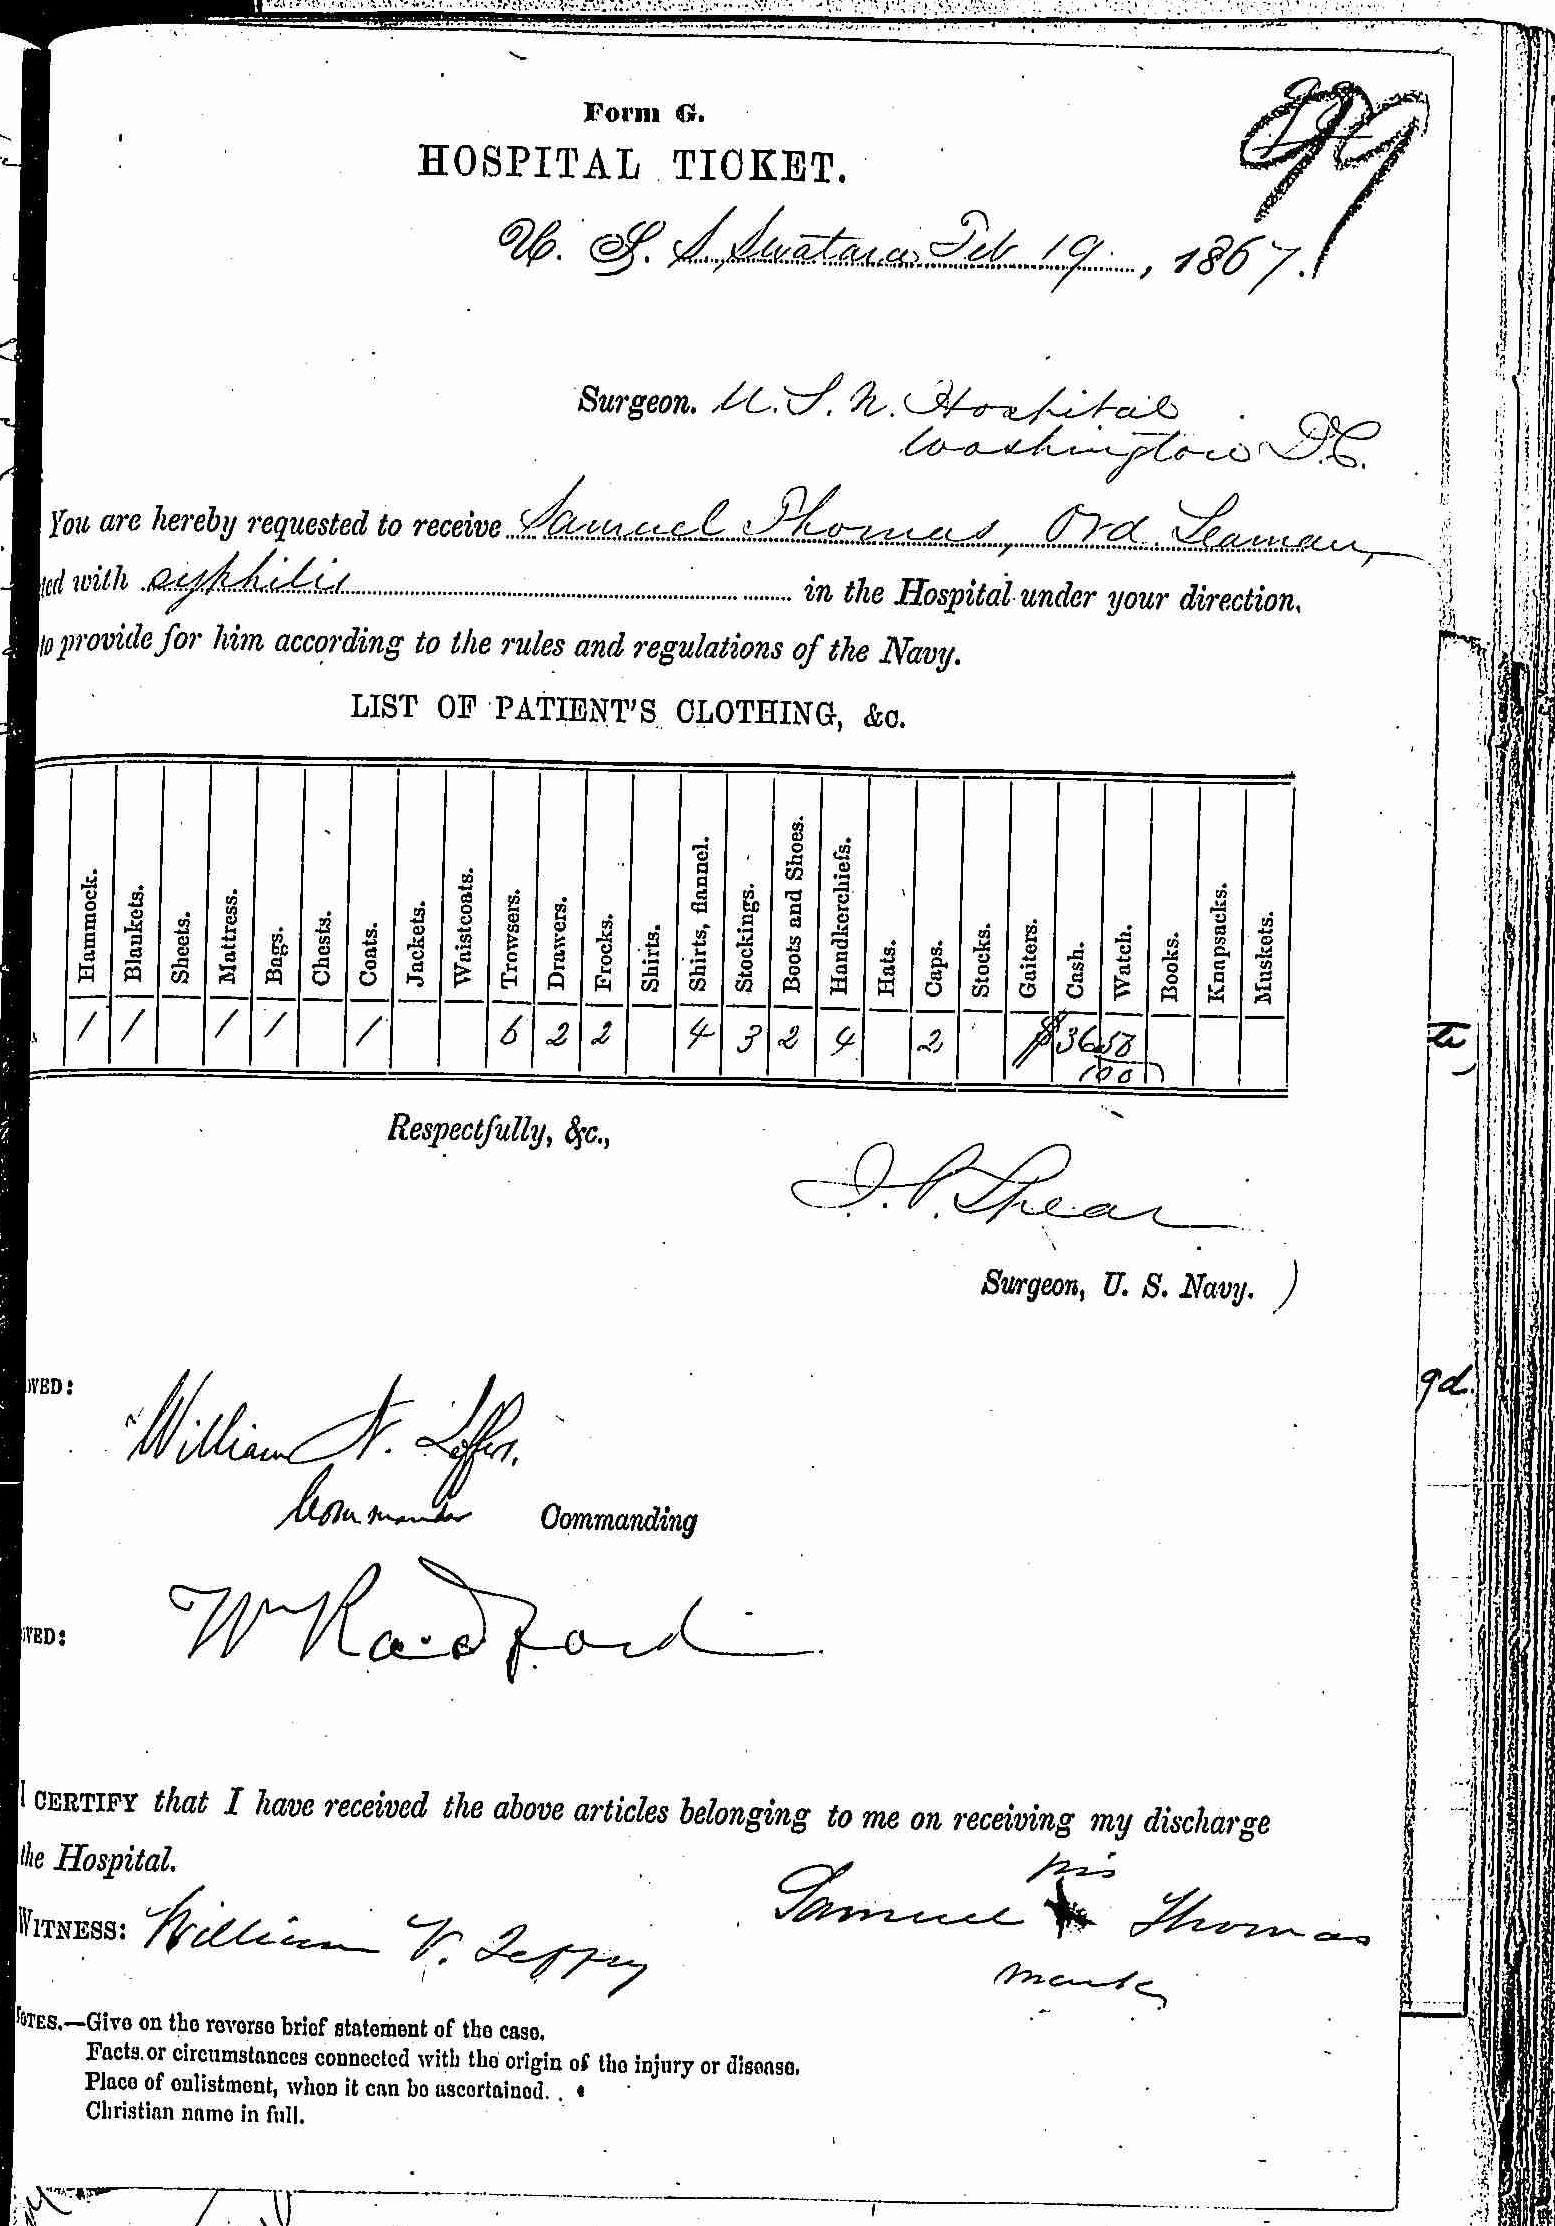 Form G.
99
HOSPITAL TICKET.
U. S. S. Swatara Feb 19, 1867.
Surgeon. U. S. N. Hospital
Washington D.C.
You are hereby requested to receive Samuel Thomas, Ord. Seaman,
ted with syphilis in the Hospital under your direction,
to provide for him according to the rules and regulations of the Navy.
LIST OF PATIENT'S CLOTHING, &c.
Hammock. Blankets. Sheets. Mattress. Bags. Chests. Coats. Jackets. Waistcoats. Trowsers. Drawers. Frocks. Shirts. Shirts, flannel. Stockings. Boots and Shoes. Handkerchiefs. Hats. Caps. Stocks. Gaiters. Cash. Watch. Books. Knapsacks. Muskets.
1 1 1 1 1 6 2 2 4 3 2 4 2 $36 58/100
Respectfully, &c.,
Surgeon, U. S. Navy.
VED:
William N. Jeffers.
Commander Commanding
VED: Wm Radford
I CERTIFY that I have received the above articles belonging to me on receiving my discharge
the Hospital.
his
WITNESS: William V. Samuel Thomas
mark
NOTES.—Give on the reverse brief statement of the case.
Facts or circumstances connected with the origin of the injury or disease.
Place of enlistment, when it can be ascertained.
Christian name in full.